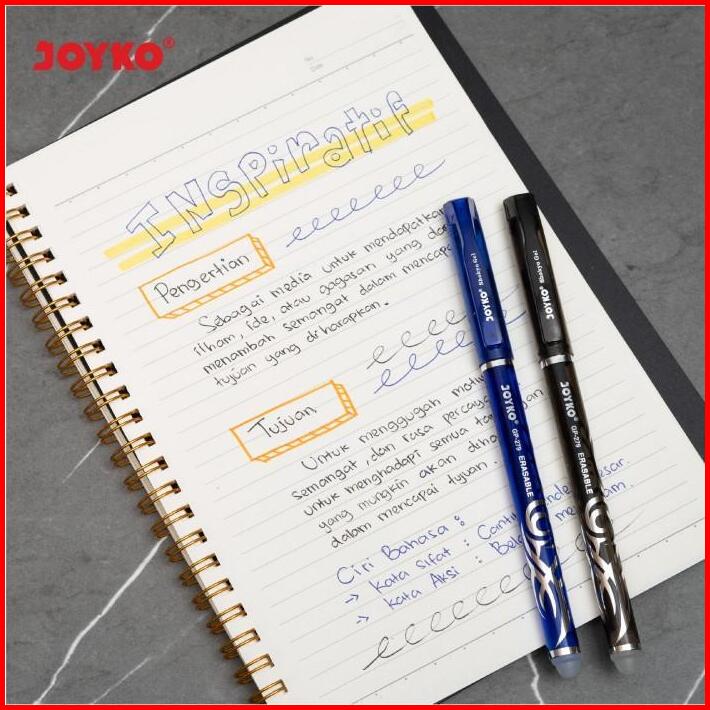 JOYKO®
No.
Date.
INSPiratif
Pengertian
Sebagai media untuk mendapatkan
ilham, ide, atau gagasan yang
menambah semangat dalam
tujuan yang diharapkan.
Tujuan
Untuk menggugah
Semangat, dan rasa
untuk menghadapi semua
yang mungkin akan
dalam mencapai tujuan.
Ciri Bahasa :
→ Kata Sifat :
→ Kata Aksi :
JOYKO® Erasable Gel
JOYKO® GP-279 ERASABLE
JOYKO® Erasable Gel
JOYKO® GP-279 ERASABLE